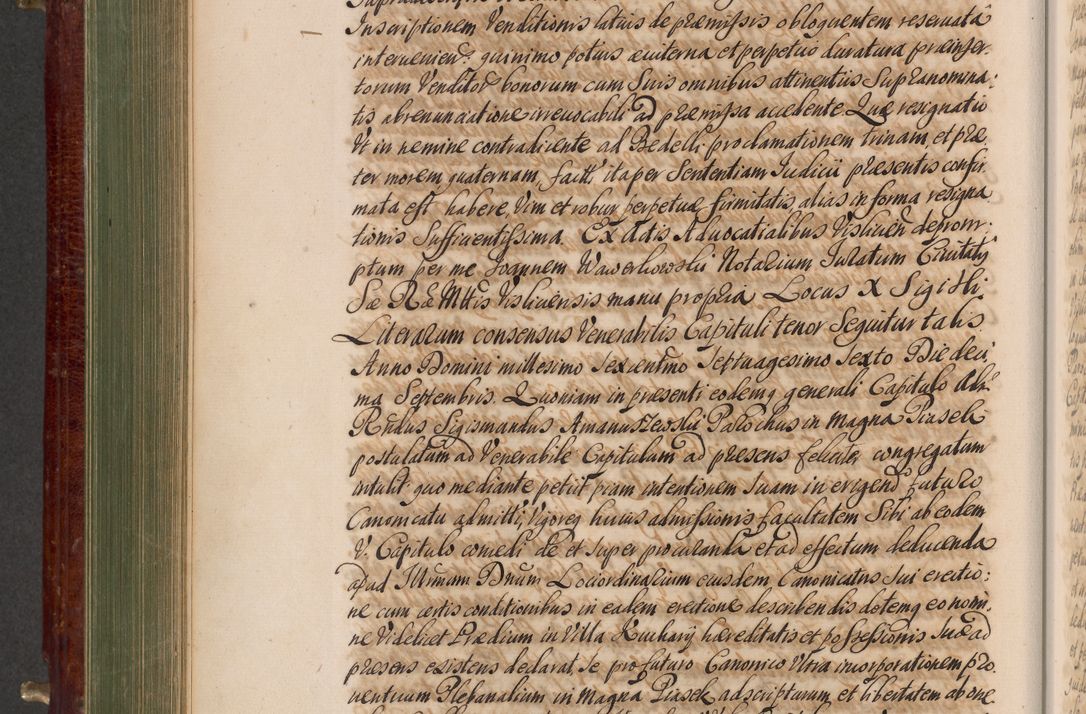 Inscriptionem Venditionis latius de præmissis obloquentem reservata
intervenien: quinimo potius æviterna et perpetuo duratura præinser:
torum Venditor bonorum cum Suis omnibus attinentiis Supranomina:
tis abrenunciatione irrevocabili ad præmissa accedente Quæ resignatio
Ut in nemine contradicente ad Bedelli proclamationem trinam, et præ
ter morem quaternam, fact: ita per Sententiam Iudicii præsentis confir:
mata est habere, Vim et robur perpetuæ firmitatis, alias in forma resigna
tionis Sufficientissima. Ex Actis Advocatialibus Vislicien deprom:
ptum per me Joannem Wawerkowski Notarium Iuratum Civitatis
Sæ Ræ Mttis Visliciensis manu propria Locus X Sigilli
Literarum consensus Venerabilis Capituli tenor Sequitur talis
Anno Domini millesimo Sexcentmo Septuagesimo Sexto Die deci
ma Septembris. Quoniam in præsenti eodemq generali Capitulo Adm
Rndus Sigismundus Amanuszewski Parochus in Magna Piasek
postulatum ad Venerabile Capitulum ad præsens feliciter congregatum
intulit quo mediante petiit piam intentionem Suam in erigend futuro
Canonicatu admitti, Vigoreq huius admissionis facultatem Sibi ab eodem
V. Capitulo concedi de et super procuranda et ad effectum deducenda
apud Illrmum Dnum Lociordinarium eiusdem Canonicatus Sui erectio:
ne cum certis conditionibus in eadem erectione describendis dotemq eo nomi:
ne Videlicet Prædium in Villa Kuchary hæreditatis et possessionis Suæ ad
præsens existens declarat, Se pro futuro Canonico Ultra incorporationem pro
ventuum Plebanalium in Magna Piasek adscripturum et libertatem ab one